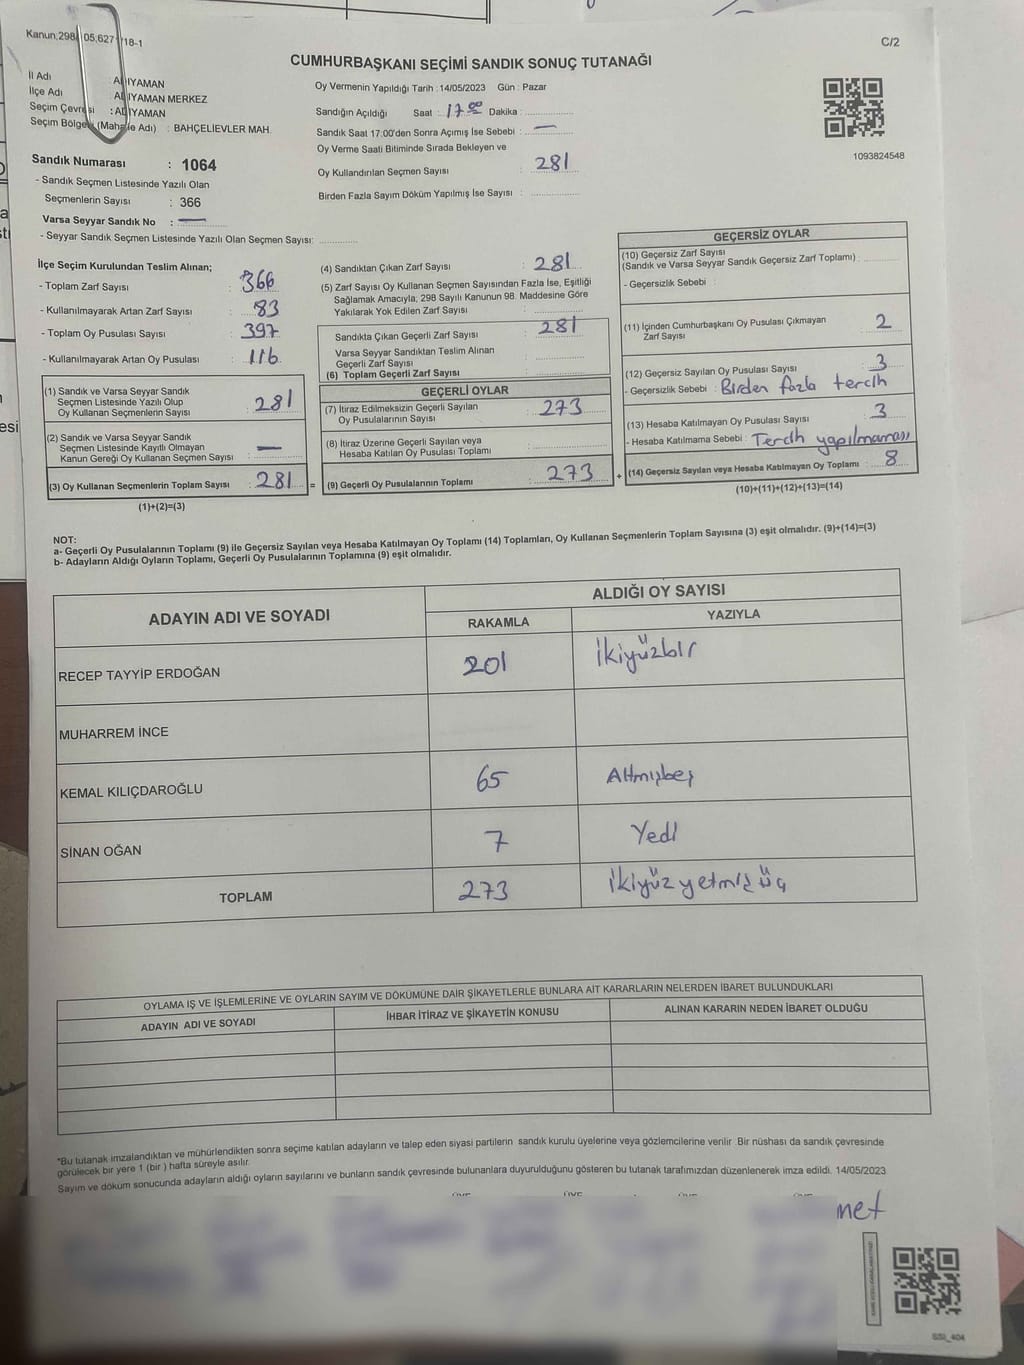 Kanun:298/ 05;627 /18-1
C/2
CUMHURBAŞKANI SEÇİMİ SANDIK SONUÇ TUTANAĞI
İl Adı : ADIYAMAN
İlçe Adı ADIYAMAN MERKEZ
Seçim Çevresi : ADIYAMAN
Seçim Bölgesi (Mahalle Adı) : BAHÇELİEVLER MAH.
Sandık Numarası : 1064
- Sandık Seçmen Listesinde Yazılı Olan
Seçmenlerin Sayısı : 366
Varsa Seyyar Sandık No : —
- Seyyar Sandık Seçmen Listesinde Yazılı Olan Seçmen Sayısı:
Oy Vermenin Yapıldığı Tarih :14/05/2023 Gün : Pazar
Sandığın Açıldığı Saat : 17 00 Dakika :
Sandık Saat 17.00'den Sonra Açımış İse Sebebi : —
Oy Verme Saati Bitiminde Sırada Bekleyen ve
Oy Kullandırılan Seçmen Sayısı : 281
Birden Fazla Sayım Döküm Yapılmış İse Sayısı :
1093824548
İlçe Seçim Kurulundan Teslim Alınan;
- Toplam Zarf Sayısı : 366
- Kullanılmayarak Artan Zarf Sayısı : 83
- Toplam Oy Pusulası Sayısı : 397
- Kullanılmayarak Artan Oy Pusulası : 116
(1) Sandık ve Varsa Seyyar Sandık
Seçmen Listesinde Yazılı Olup
Oy Kullanan Seçmenlerin Sayısı : 281
(2) Sandık ve Varsa Seyyar Sandık
Seçmen Listesinde Kayıtlı Olmayan
Kanun Gereği Oy Kullanan Seçmen Sayısı : —
(3) Oy Kullanan Seçmenlerin Toplam Sayısı : 281 =
(1)+(2)=(3)
(4) Sandıktan Çıkan Zarf Sayısı : 281
(5) Zarf Sayısı Oy Kullanan Seçmen Sayısından Fazla İse, Eşitliği
Sağlamak Amacıyla; 298 Sayılı Kanunun 98. Maddesine Göre
Yakılarak Yok Edilen Zarf Sayısı :
Sandıkta Çıkan Geçerli Zarf Sayısı : 281
Varsa Seyyar Sandıktan Teslim Alınan
Geçerli Zarf Sayısı :
(6) Toplam Geçerli Zarf Sayısı :
GEÇERLİ OYLAR
(7) İtiraz Edilmeksizin Geçerli Sayılan
Oy Pusulalarının Sayısı : 273
(8) İtiraz Üzerine Geçerli Sayılan veya
Hesaba Katılan Oy Pusulası Toplamı :
(9) Geçerli Oy Pusulalarının Toplamı : 273 +
GEÇERSİZ OYLAR
(10) Geçersiz Zarf Sayısı
(Sandık ve Varsa Seyyar Sandık Geçersiz Zarf Toplamı) :
- Geçersizlik Sebebi :
(11) İçinden Cumhurbaşkanı Oy Pusulası Çıkmayan
Zarf Sayısı : 2
(12) Geçersiz Sayılan Oy Pusulası Sayısı : 3
- Geçersizlik Sebebi : Birden fazla tercih
(13) Hesaba Katılmayan Oy Pusulası Sayısı : 3
- Hesaba Katılmama Sebebi : Tercih yapılmaması
(14) Geçersiz Sayılan veya Hesaba Katılmayan Oy Toplamı : 8
(10)+(11)+(12)+(13)=(14)
NOT:
a- Geçerli Oy Pusulalarının Toplamı (9) ile Geçersiz Sayılan veya Hesaba Katılmayan Oy Toplamı (14) Toplamları, Oy Kullanan Seçmenlerin Toplam Sayısına (3) eşit olmalıdır. (9)+(14)=(3)
b- Adayların Aldığı Oyların Toplamı, Geçerli Oy Pusulalarının Toplamına (9) eşit olmalıdır.
ADAYIN ADI VE SOYADI
ALDIĞI OY SAYISI
RAKAMLA YAZIYLA
RECEP TAYYİP ERDOĞAN 201 İkiyüzbir
MUHARREM İNCE
KEMAL KILIÇDAROĞLU 65 Altmışbeş
SİNAN OĞAN 7 Yedi
TOPLAM 273 ikiyüz yetmiş üç
OYLAMA İŞ VE İŞLEMLERİNE VE OYLARIN SAYIM VE DÖKÜMÜNE DAİR ŞİKAYETLERLE BUNLARA AİT KARARLARIN NELERDEN İBARET BULUNDUKLARI
ADAYIN ADI VE SOYADI İHBAR İTİRAZ VE ŞİKAYETİN KONUSU ALINAN KARARIN NEDEN İBARET OLDUĞU
*Bu tutanak imzalandıktan ve mühürlendikten sonra seçime katılan adayların ve talep eden siyasi partilerin sandık kurulu üyelerine veya gözlemcilerine verilir. Bir nüshası da sandık çevresinde
görülecek bir yere 1 (bir ) hafta süreyle asılır.
Sayım ve döküm sonucunda adayların aldığı oyların sayılarını ve bunların sandık çevresinde bulunanlara duyurulduğunu gösteren bu tutanak tarafımızdan düzenlenerek imza edildi. 14/05/2023
met
SSI_404